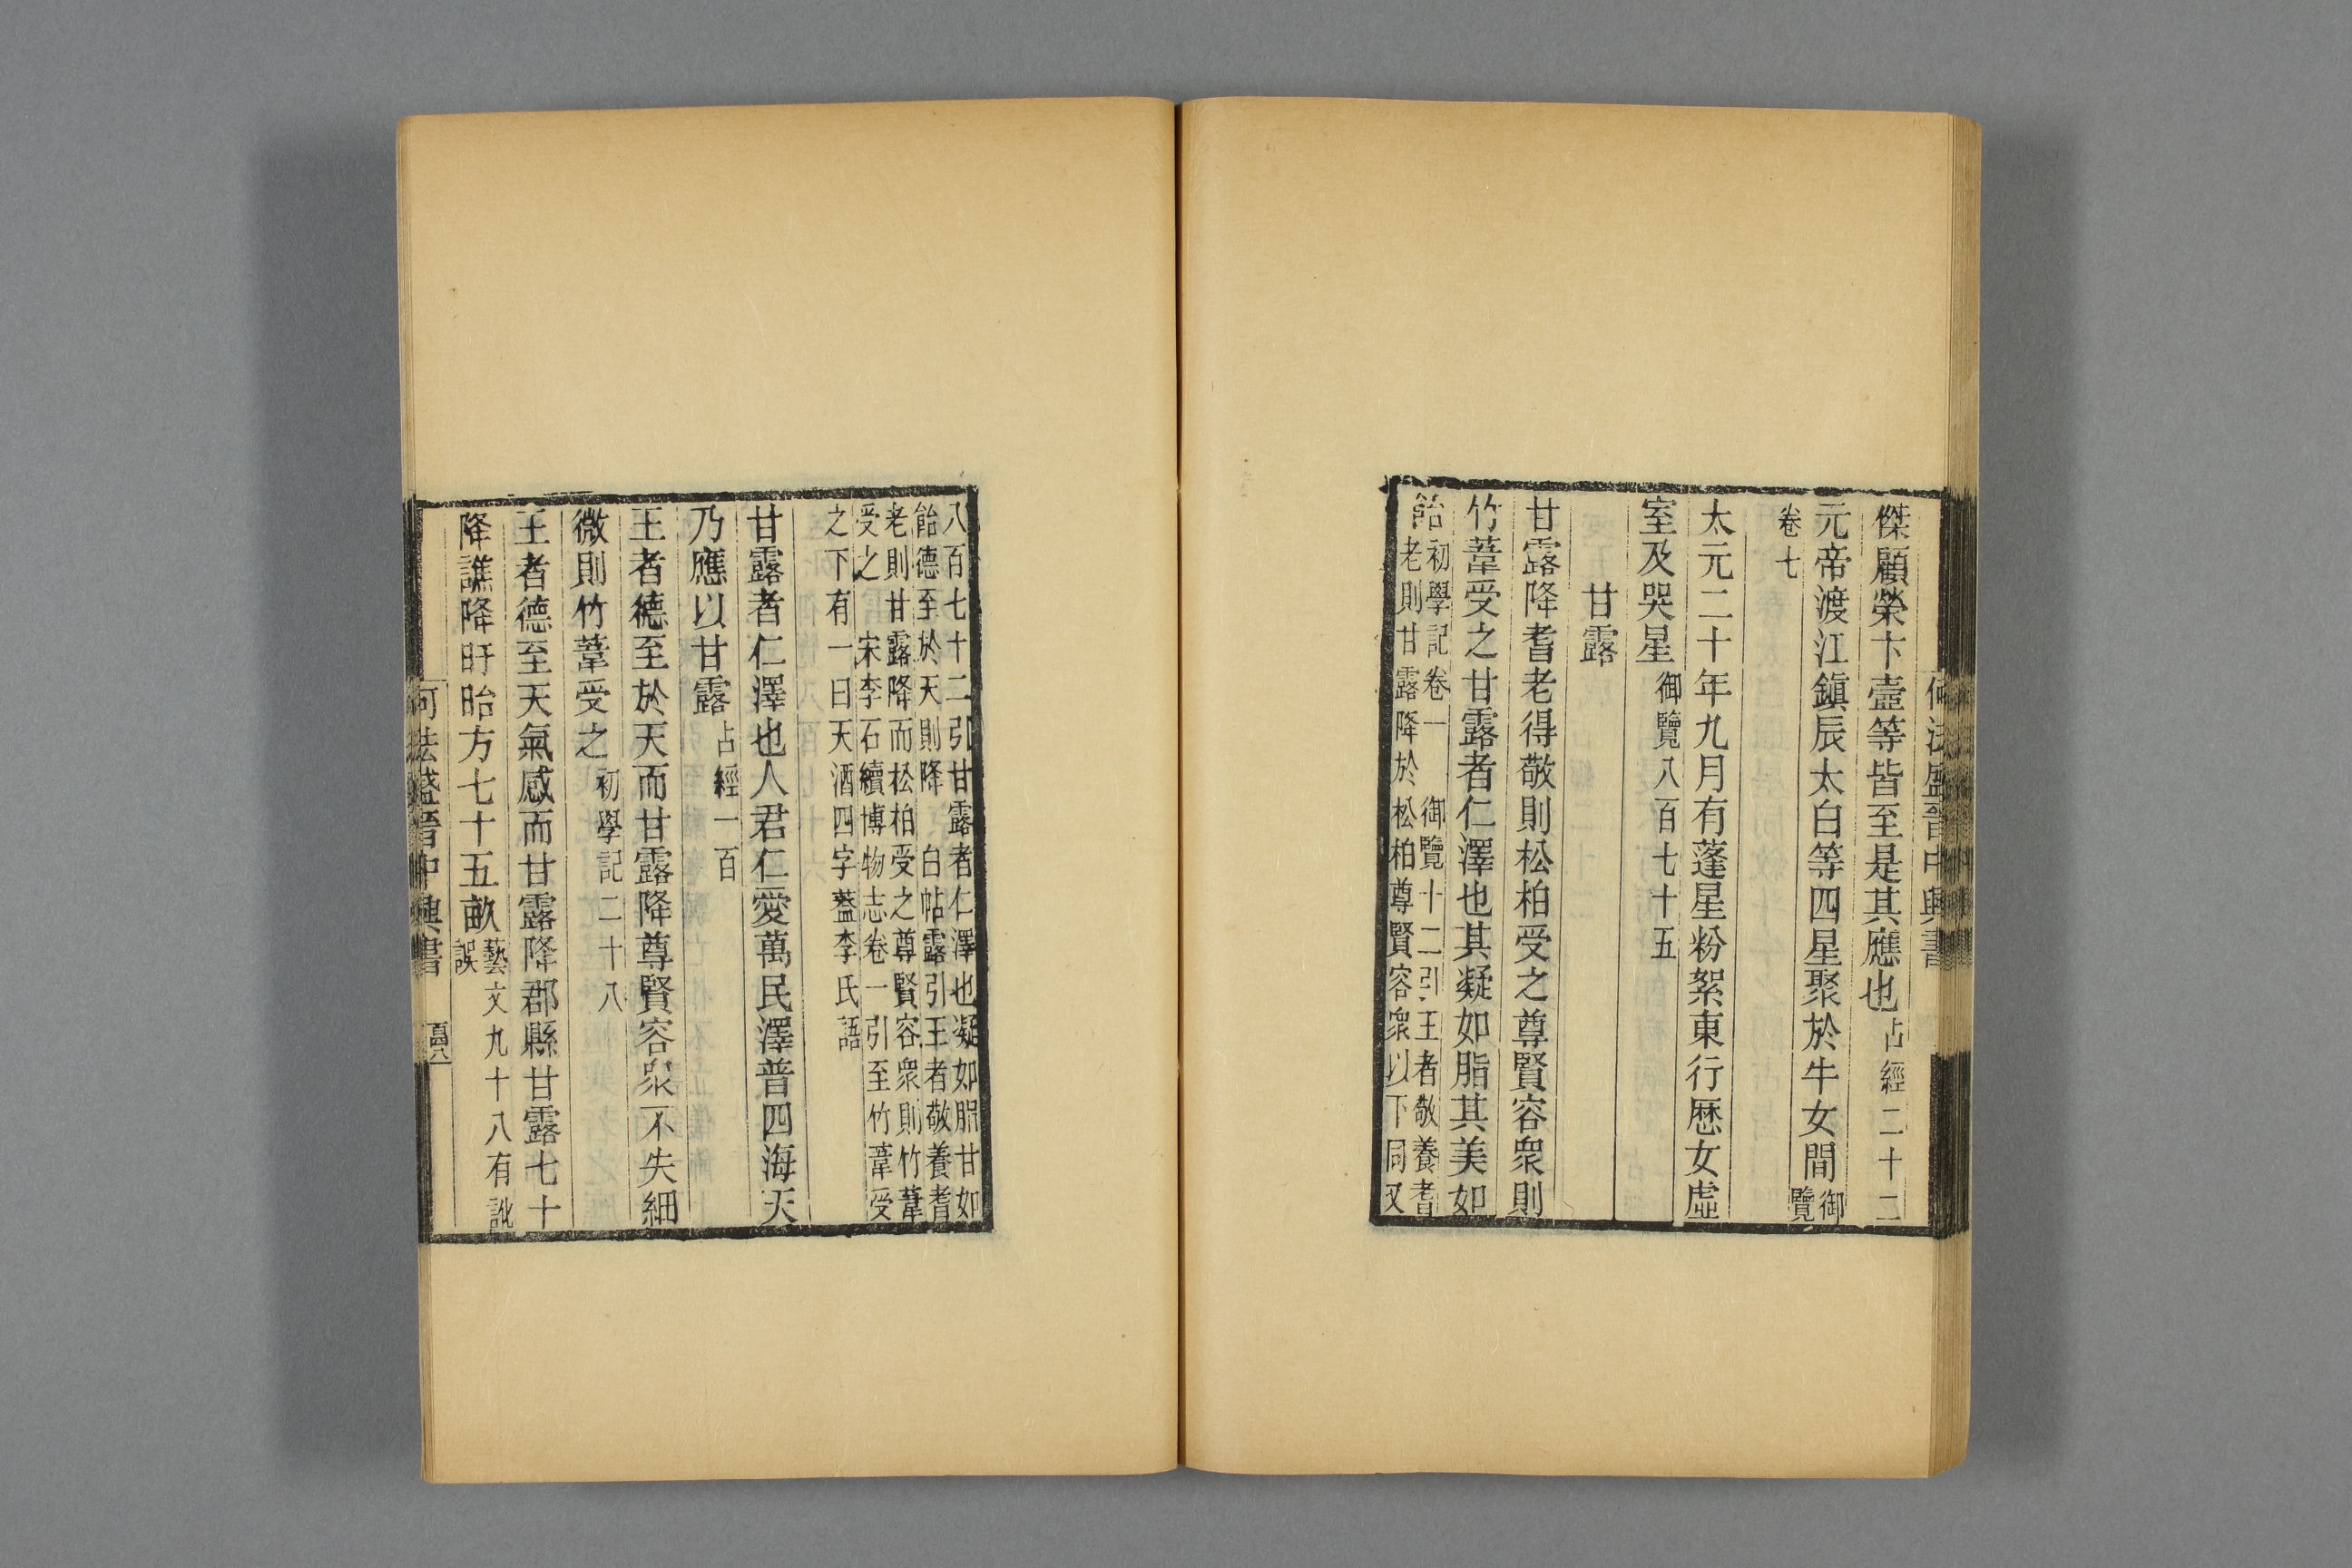 傑顧榮卞壼等皆至是其應也占經二十二
元帝渡江鎮辰太白等四星聚於牛女間御
覽
卷七
太元二十年九月有蓬星粉絮東行歷女虛
室及哭星御覽八百七十五
甘露
甘露降耆老得敬則松柏受之尊賢容衆則
竹葦受之甘露者仁澤也其凝如脂其美如
飴初學記卷一 御覽十二引王者敬養耆
老則甘露降於松柏尊賢容衆以下同又
八百七十二引甘露者仁澤也凝如脂甘如
飴德至於天則降 白帖露引王者敬養耆
老則甘露降而松柏受之尊賢容衆則竹葦
受之 宋李石續博物志卷一引至竹葦受
之下有一曰天酒四字葢李氏語
甘露者仁澤也人君仁愛萬民澤普四海天
乃應以甘露占經一百
王者德至於天而甘露降尊賢容衆不失細
微則竹葦受之初學記二十八
王者德至天氣感而甘露降郡縣甘露七十
降譙降盱眙方七十五畝藝文九十八有訛
誤
何法盛晉中興書